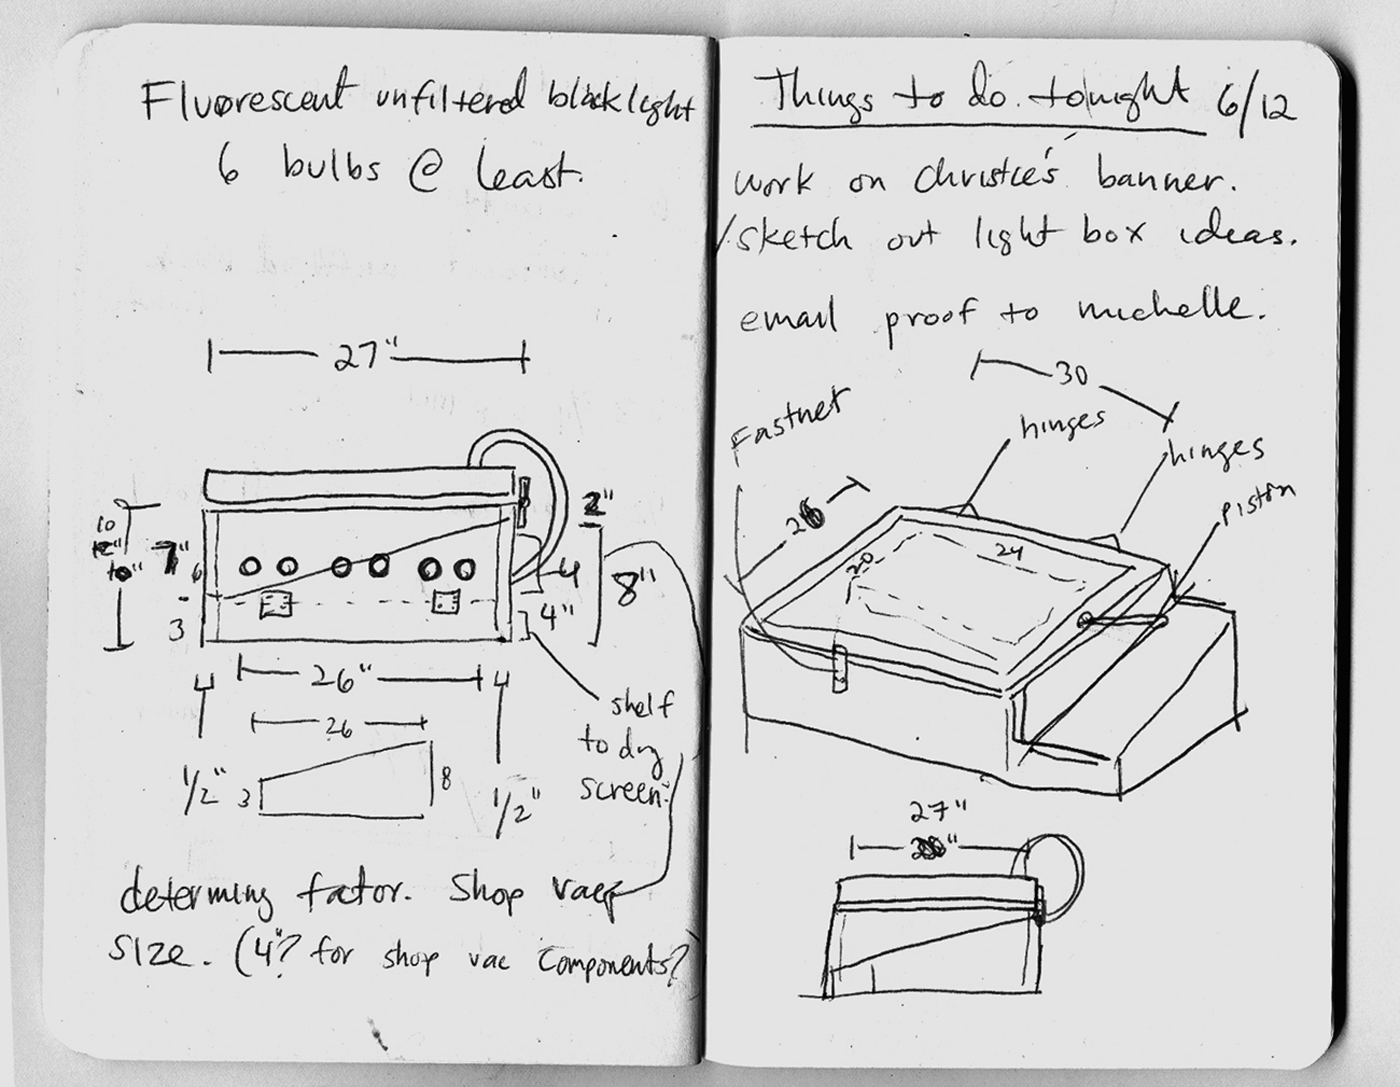 Fluorescent unfiltered blacklight
6 bulbs @ least.
27"
10
12"
10"
7"
6
3
2"
4
8"
4"
26"
4
4
26
1/2"
3
8
1/2"
shelf
to dry
screen.
determing factor. Shop vac
size. (4"? for shop vac components?
Things to do tonight 6/12
work on Christie's banner.
/sketch out light box ideas.
email proof to michelle.
30
Fastnet
hinges
hinges
piston
26
24
20
27"